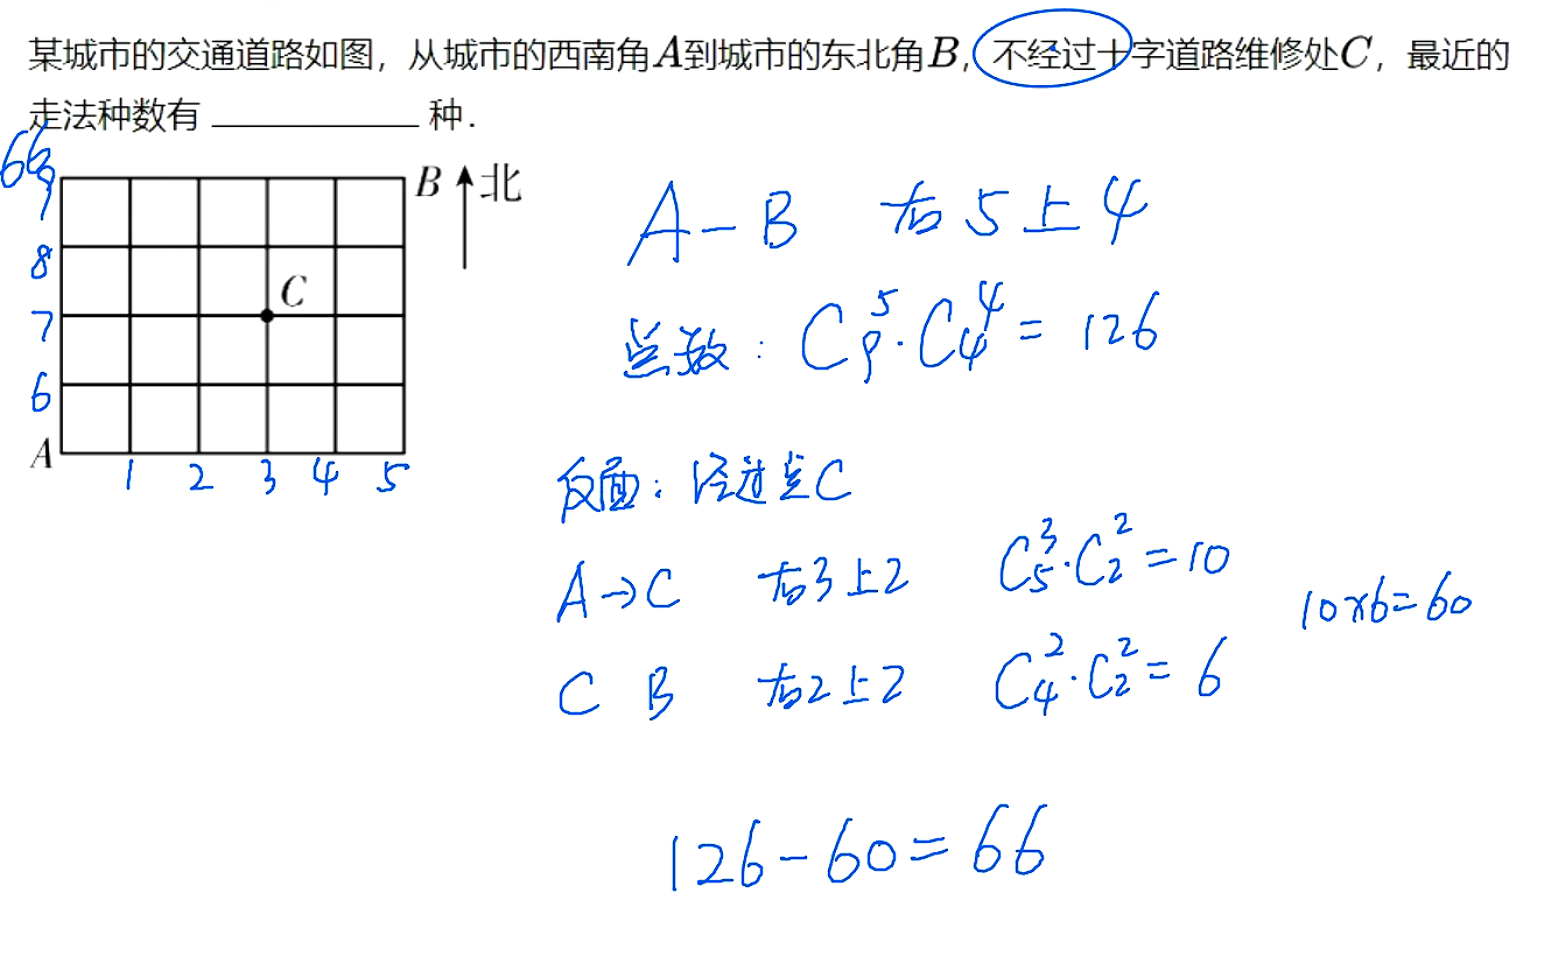 某城市的交通道路如图，从城市的西南角A到城市的东北角B，不经过十字道路维修处C，最近的
走法种数有 ________ 种.
66
9
B 北
8
C
7
6
A
1 2 3 4 5
A-B 右5上4
总数：C₉⁵·C₄⁴=126
反面：经过点C
A→C 右3上2 C₅³·C₂²=10
10×6=60
C B 右2上2 C₄²·C₂²=6
126-60=66